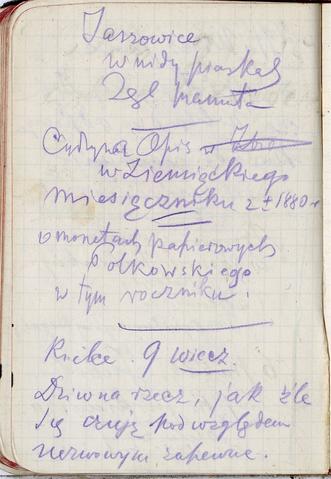 Jaszowice
w nidy piaski
Zgl
Opis w
w Ziemięckiego
miesięczniku z r 1880 r
o monetach papierowych
Polkowskiego
w tym roczniku.
Kielce. 9 wiecz.
Dziwna rzecz, jak źle
się czuję pod względem
nerwowym zapewne.